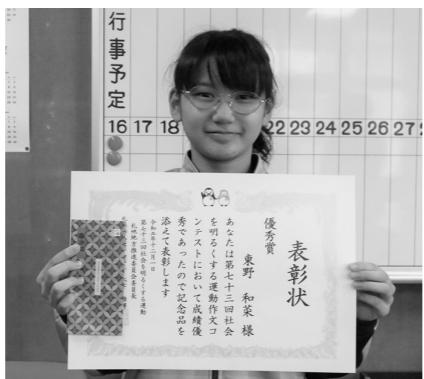 行事予定
16 17 18 22 23 24 25 26 27
表彰状
優秀賞
東野 和菜 様
あなたは第七十三回社会
を明るくする運動作文コ
ンテストにおいて成績優
秀であったので記念品を
添えて表彰します
令和五年十二月一日
第七十三回社会を明るくする運動
札幌地方推進委員会委員長